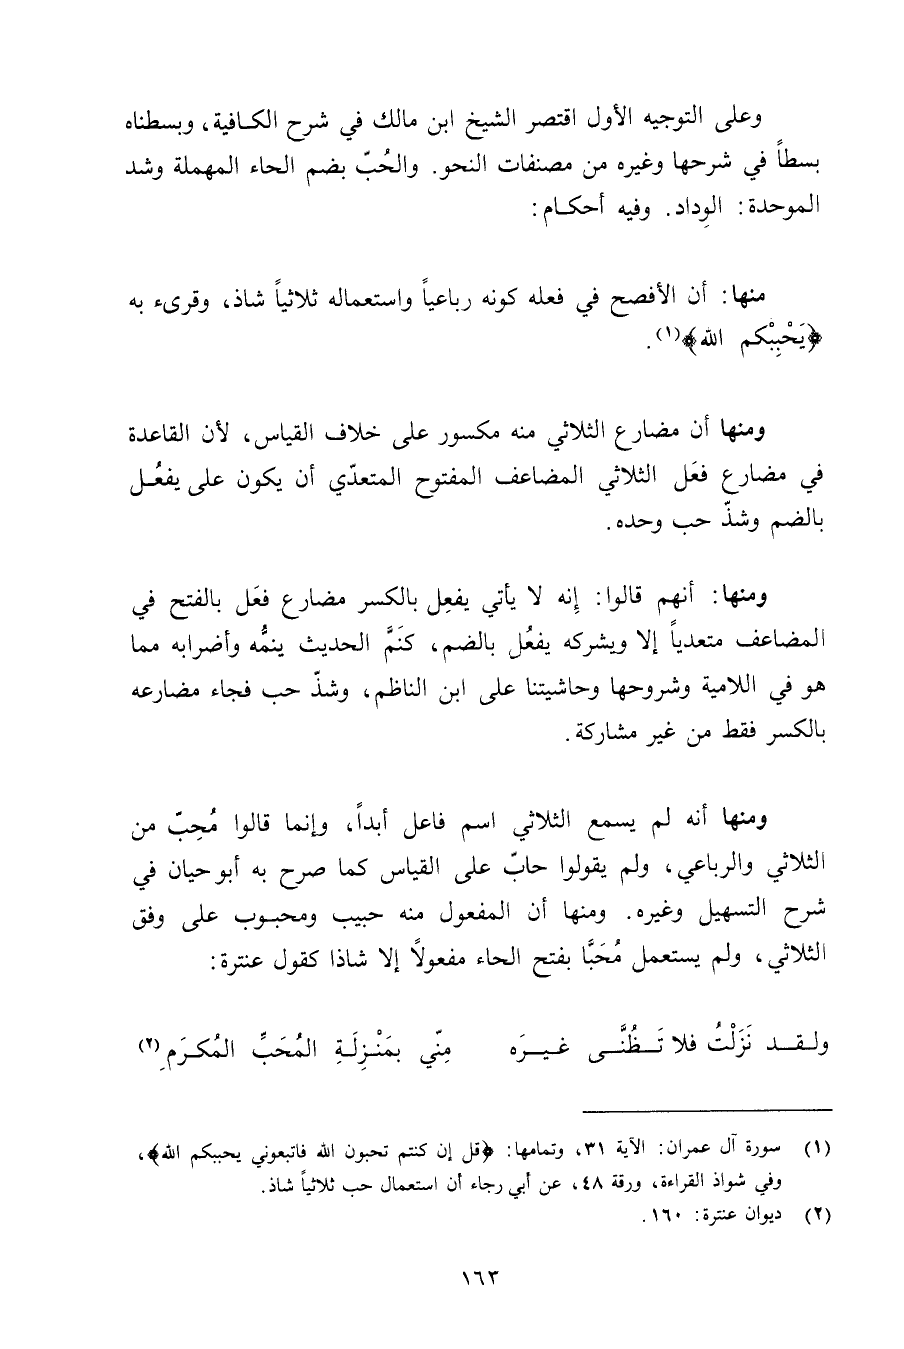 وعلى التوجيه الأول اقتصر الشيخ ابن مالك في شرح الكافية، وبسطناه
بسطاً في شرحها وغيره من مصنفات النحو. والحُبّ بضم الحاء المهملة وشد
الموحدة: الوِداد. وفيه أحكام:
منها: أن الأفصح في فعله كونه رباعياً واستعماله ثلاثياً شاذ، وقرىء به
﴿يَحْبِبْكم الله﴾(١).
ومنها أن مضارع الثلاثي منه مكسور على خلاف القياس، لأن القاعدة
في مضارع فعَل الثلاثي المضاعف المفتوح المتعدّي أن يكون على يفعُل
بالضم وشذّ حب وحده.
ومنها: أنهم قالوا: إنه لا يأتي يفعِل بالكسر مضارع فعَل بالفتح في
المضاعف متعدياً إلا ويشركه يفعُل بالضم، كَنَمَّ الحديث ينمُّه وأضرابه مما
هو في اللامية وشروحها وحاشيتنا على ابن الناظم، وشذّ حب فجاء مضارعه
بالكسر فقط من غير مشاركة.
ومنها أنه لم يسمع الثلاثي اسم فاعل أبداً، وإنما قالوا مُحِبّ من
الثلاثي والرباعي، ولم يقولوا حابّ على القياس كما صرح به أبو حيان في
شرح التسهيل وغيره. ومنها أن المفعول منه حبيب ومحبوب على وفق
الثلاثي، ولم يستعمل مُحَبًّا بفتح الحاء مفعولًا إلا شاذا كقول عنترة:
ولقد نَزَلْتُ فلا تَظُنَّى غيرَه مِنّي بمَنْزِلَةِ المُحَبِّ المُكرَمِ(٢)
(١) سورة آل عمران: الآية ٣١، وتمامها: ﴿قل إن كنتم تحبون الله فاتبعوني يحببكم الله﴾،
وفي شواذ القراءة، ورقة ٤٨، عن أبي رجاء أن استعمال حب ثلاثياً شاذ.
(٢) ديوان عنترة: ١٦٠.
١٦٣